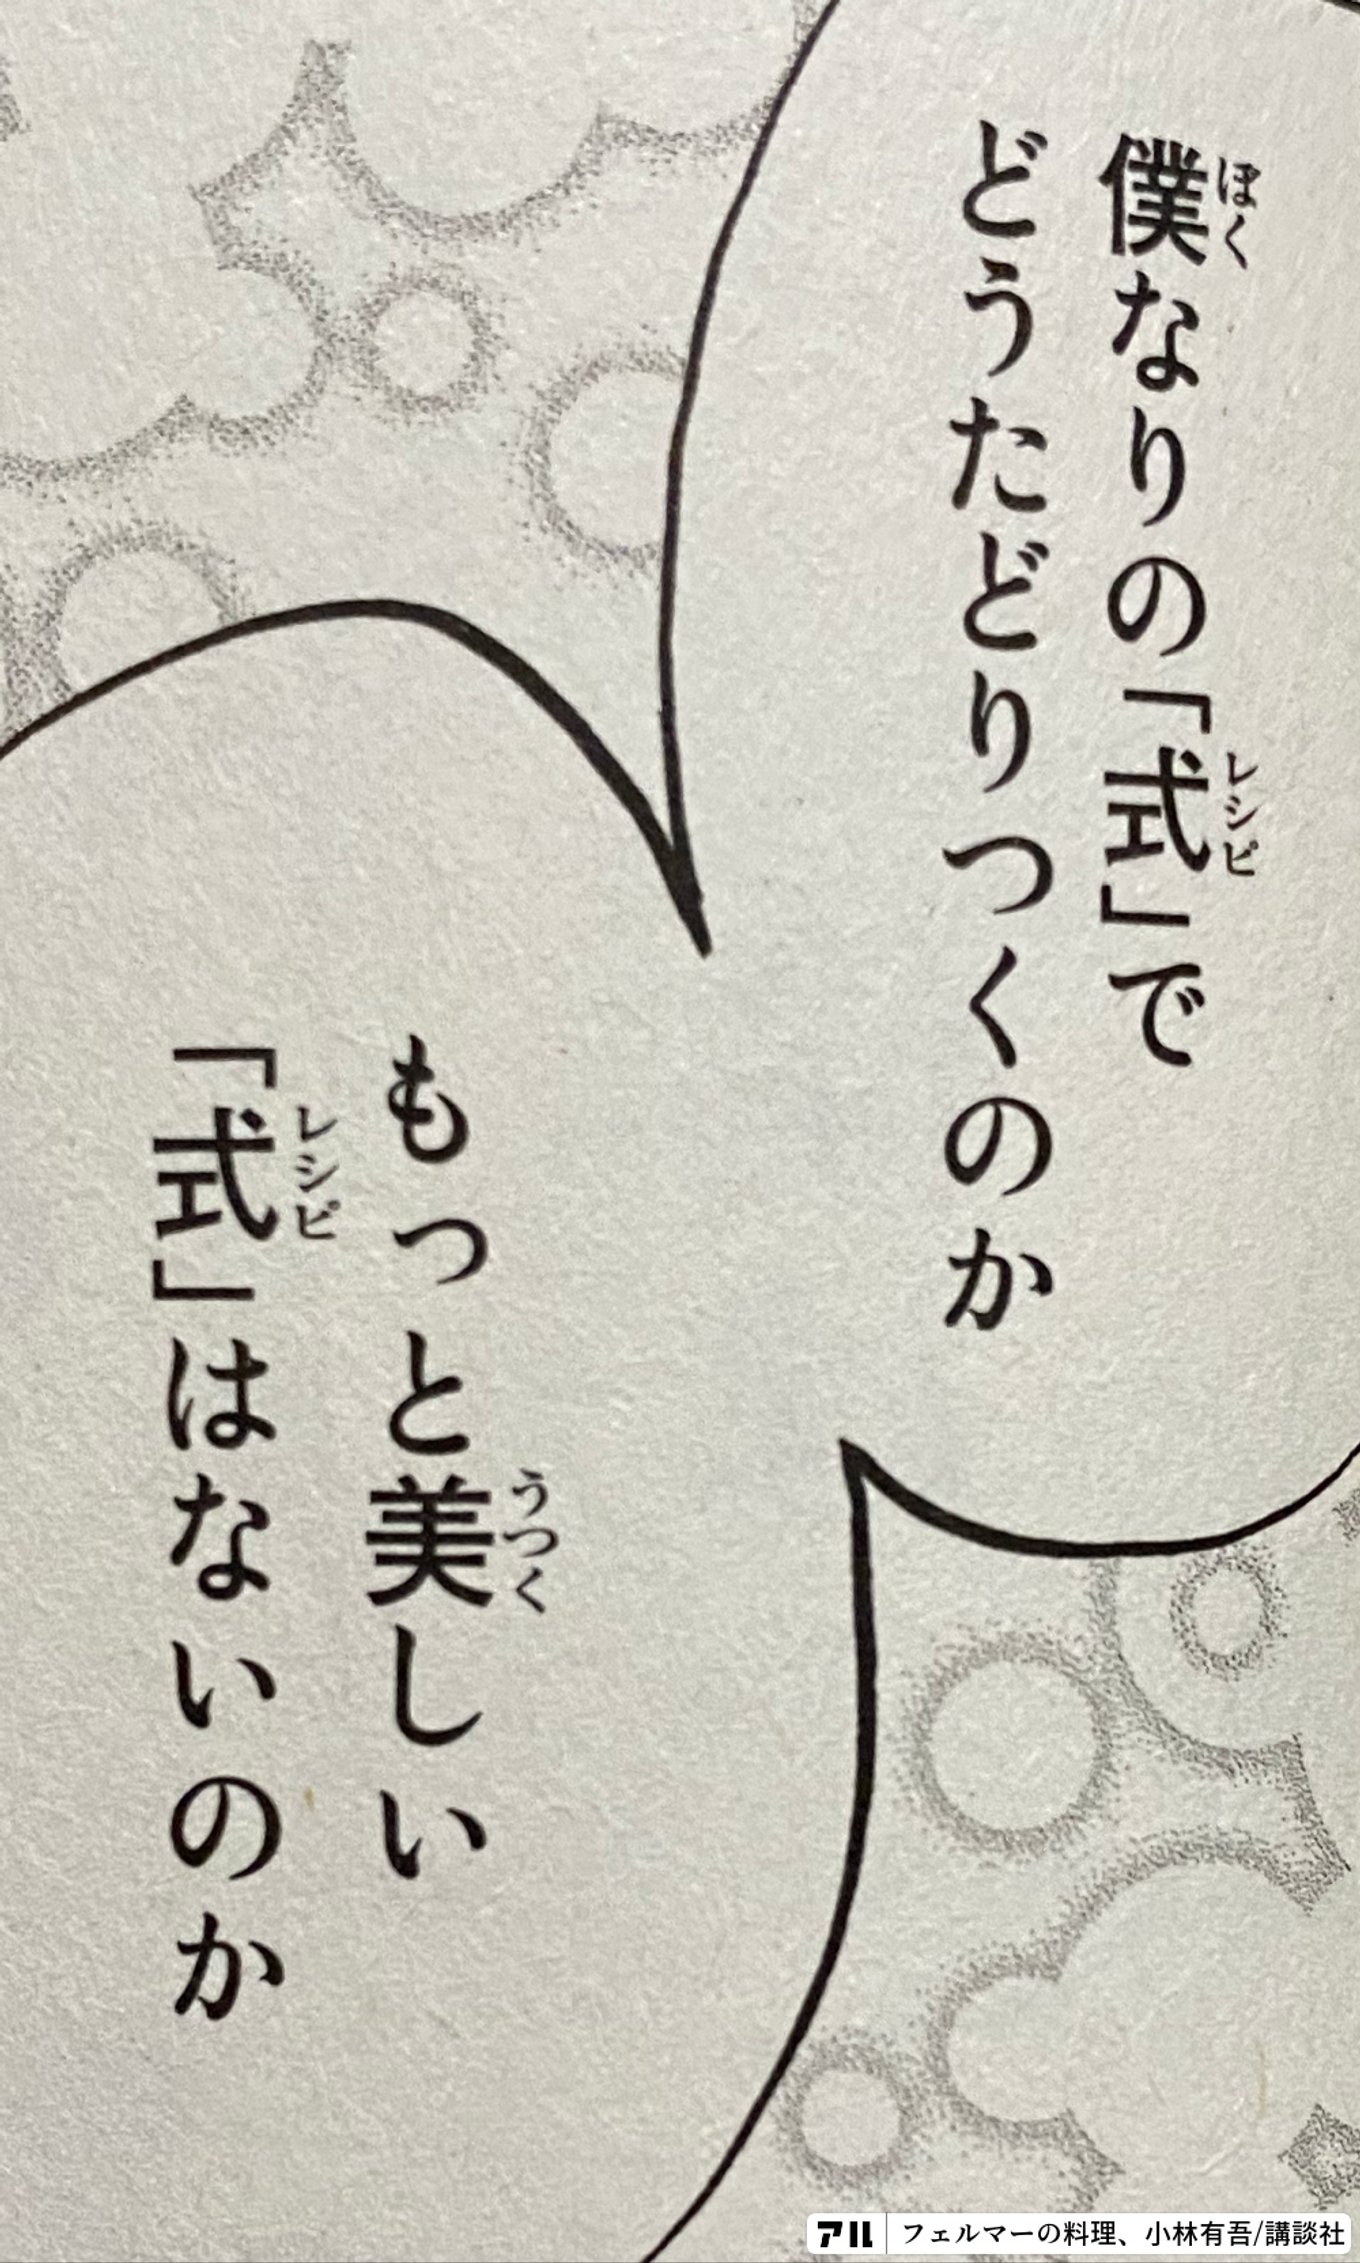 僕なりの「式」で
どうたどりつくのか
もっと美しい
「式」はないのか
ぼく
レシピ
うつく
レシピ
アル
フェルマーの料理、小林有吾/講談社